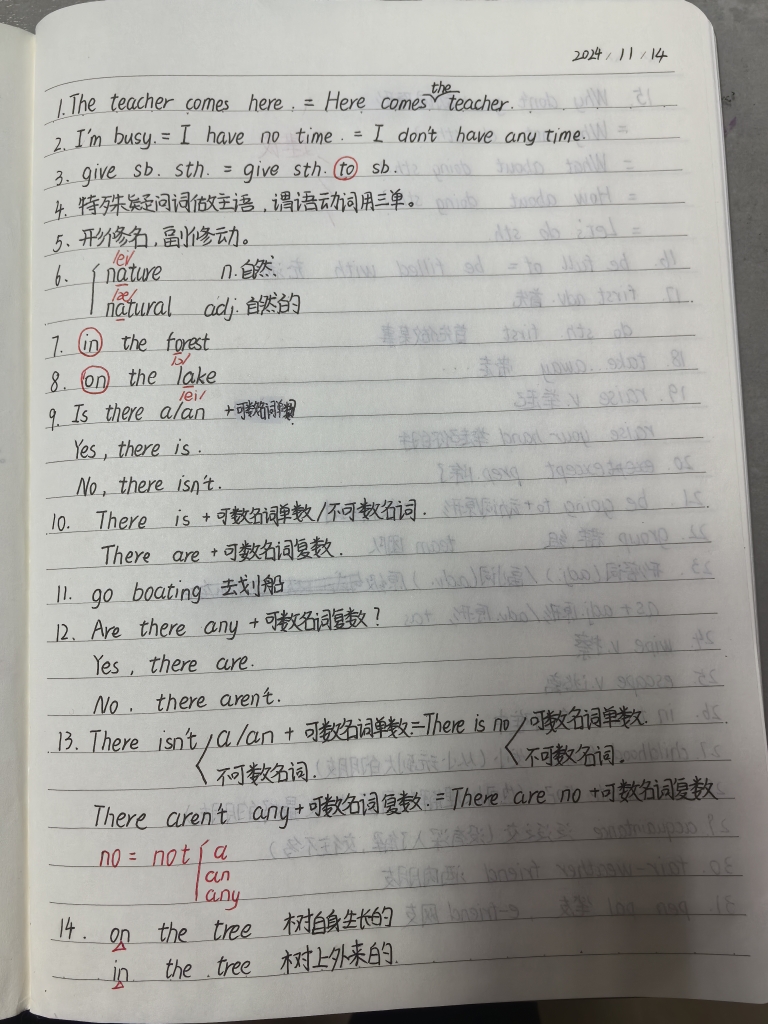 2024/11/14
1. The teacher comes here. = Here comes the teacher.
2. I'm busy. = I have no time. = I don't have any time.
3. give sb. sth. = give sth. to sb.
4. 特殊疑问词做主语，谓语动词用三单。
5. 形修名，副修动。
/ei/
6. nature n. 自然.
/æ/
natural adj. 自然的
7. in the forest
/ɔ/
8. on the lake
/ei/
9. Is there a/an +可数名词单数
Yes, there is.
No, there isn't.
10. There is +可数名词单数/不可数名词.
There are +可数名词复数.
11. go boating 去划船
12. Are there any +可数名词复数?
Yes, there are.
No. there aren't.
13. There isn't a/an + 可数名词单数.=There is no 可数名词单数.
不可数名词. 不可数名词.
There aren't any+可数名词复数. = There are no +可数名词复数
no = not a
an
any
14. on the tree 树自身生长的
in the tree 树上外来的.